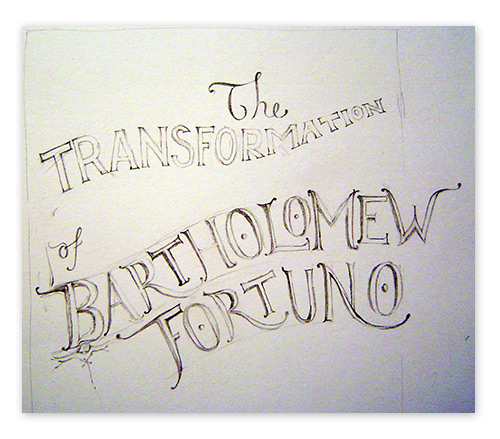 The
TRANSFORMATION
of
BARTHOLOMEW
FORTUNO